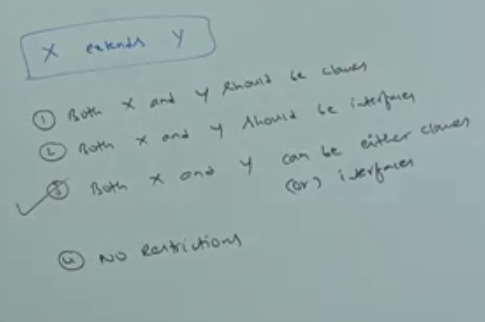 X extends Y
① Both X and Y should be classes
② Both X and Y should be interfaces
③ Both X and Y can be either classes
(or) interfaces
④ No Restrictions